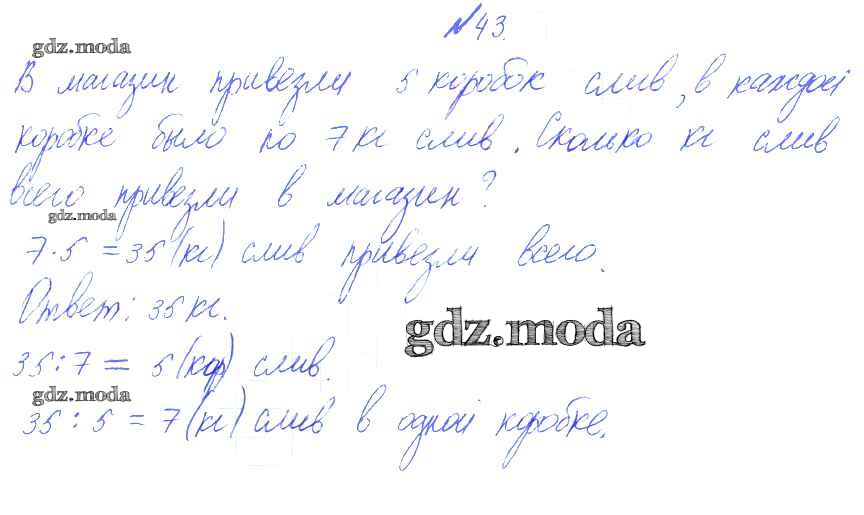 №43.
gdz.moda
В магазин привезли 5 коробок слив, в каждой
коробке было по 7 кг слив. Сколько кг слив
всего привезли в магазин?
gdz.moda
7·5 = 35 (кг) слив привезли всего.
Ответ: 35 кг.
gdz.moda
35:7 = 5 (кор) слив.
gdz.moda
35 : 5 = 7 (кг) слив в одной коробке.